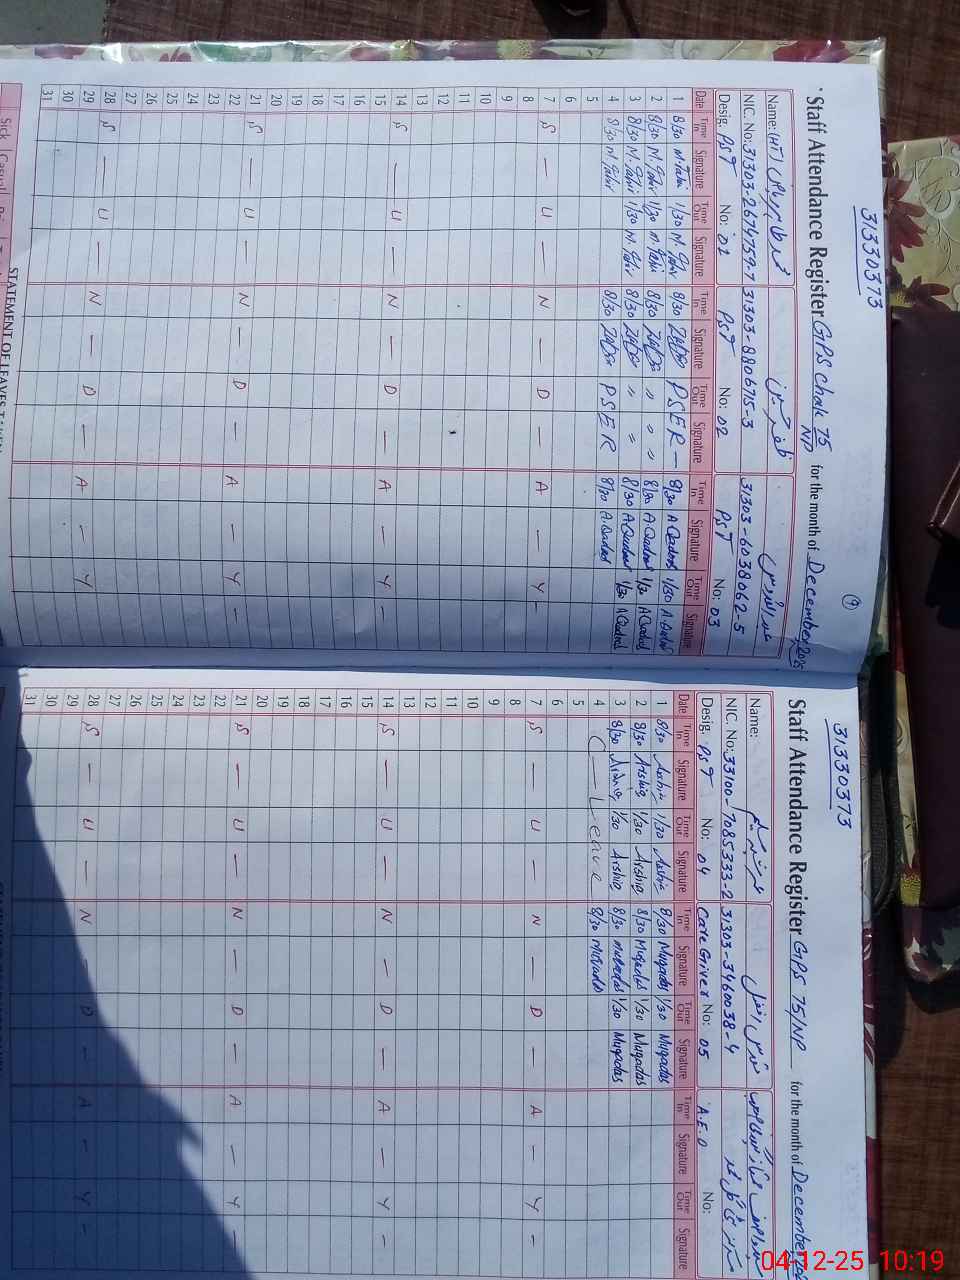 31330373
Staff Attendance Register GPS Chak 75/NP for the month of December 2025
Name: (HT)
NIC. No: 31303-2674759-7 31303-8806715-3 31303-6038062-5
Desig. PST No: 01 PST No: 02 PST No: 03
Date Time In Signature Time Out Signature Time In Signature Time Out Signature Time In Signature Time Out Signature
1 8/30 M. Tahir 1/30 M. Tahir 8/30 PSER — 8/30 A Qadoos 1/30 A Qadoos
2 8/30 M. Tahir 1/30 M. Tahir 8/30 〃 〃 〃 8/30 A Qadoos 1/30 A Qadoos
3 8/30 M. Tahir 1/30 M. Tahir 8/30 〃 〃 8/30 A Qadoos 1/30 A Qadoos
4 8/30 M. Tahir 8/30 PSER 8/30 A Qadoos
5
6
7 S — U — N — D — A — Y —
8
9
10
11
12
13
14 S — U — N — D — A — Y —
15
16
17
18
19
20
21 S — U — N — D — A — Y —
22
23
24
25
26
27
28 S — U — N — D — A — Y
29
30
31
STATEMENT OF LEAVES TAKEN
Sick Casual
31330373
Staff Attendance Register GPS 75/NP for the month of December
Name:
NIC. No: 33100-7085333-2 31303-3460038-4
Desig. PST No: 04 Care Giver No: 05 A.E.O No:
Date Time In Signature Time Out Signature Time In Signature Time Out Signature Time In Signature Time Out Signature
1 8/30 Arshia 1/30 Arshia 8/30 Muqadas 1/30 Muqadas
2 8/30 Arshia 1/30 Arshia 8/30 Muqadas 1/30 Muqadas
3 8/30 Arshia 1/30 Arshia 8/30 Muqadas 1/30 Muqadas
4 C — Leave 8/30 Muqadas
5
6
7 S — U — N — D — A — Y —
8
9
10
11
12
13
14 S — U — N — D — A — Y —
15
16
17
18
19
20
21 S — U — N — D — A — Y —
22
23
24
25
26
27
28 S — U — N — D — A — Y —
29
30
31
04-12-25 10:19